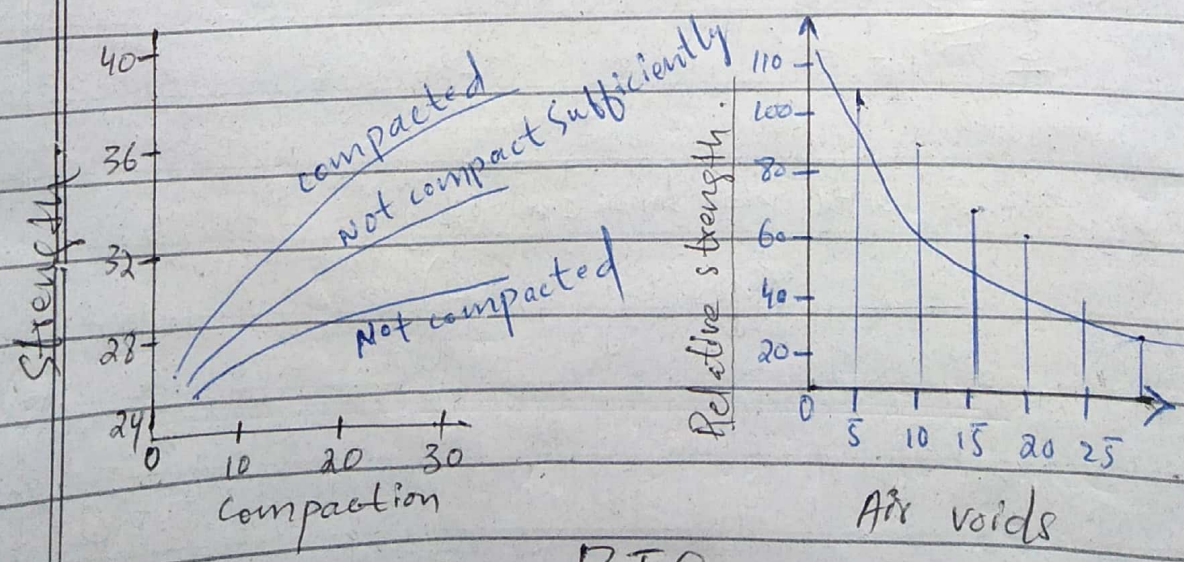 Strength
40
36
32
28
24
0
10
20
30
compaction
compacted
Not compact sufficiently
Not compacted
Relative strength.
110
100
80
60
40
20
0
5
10
15
20
25
Air voids